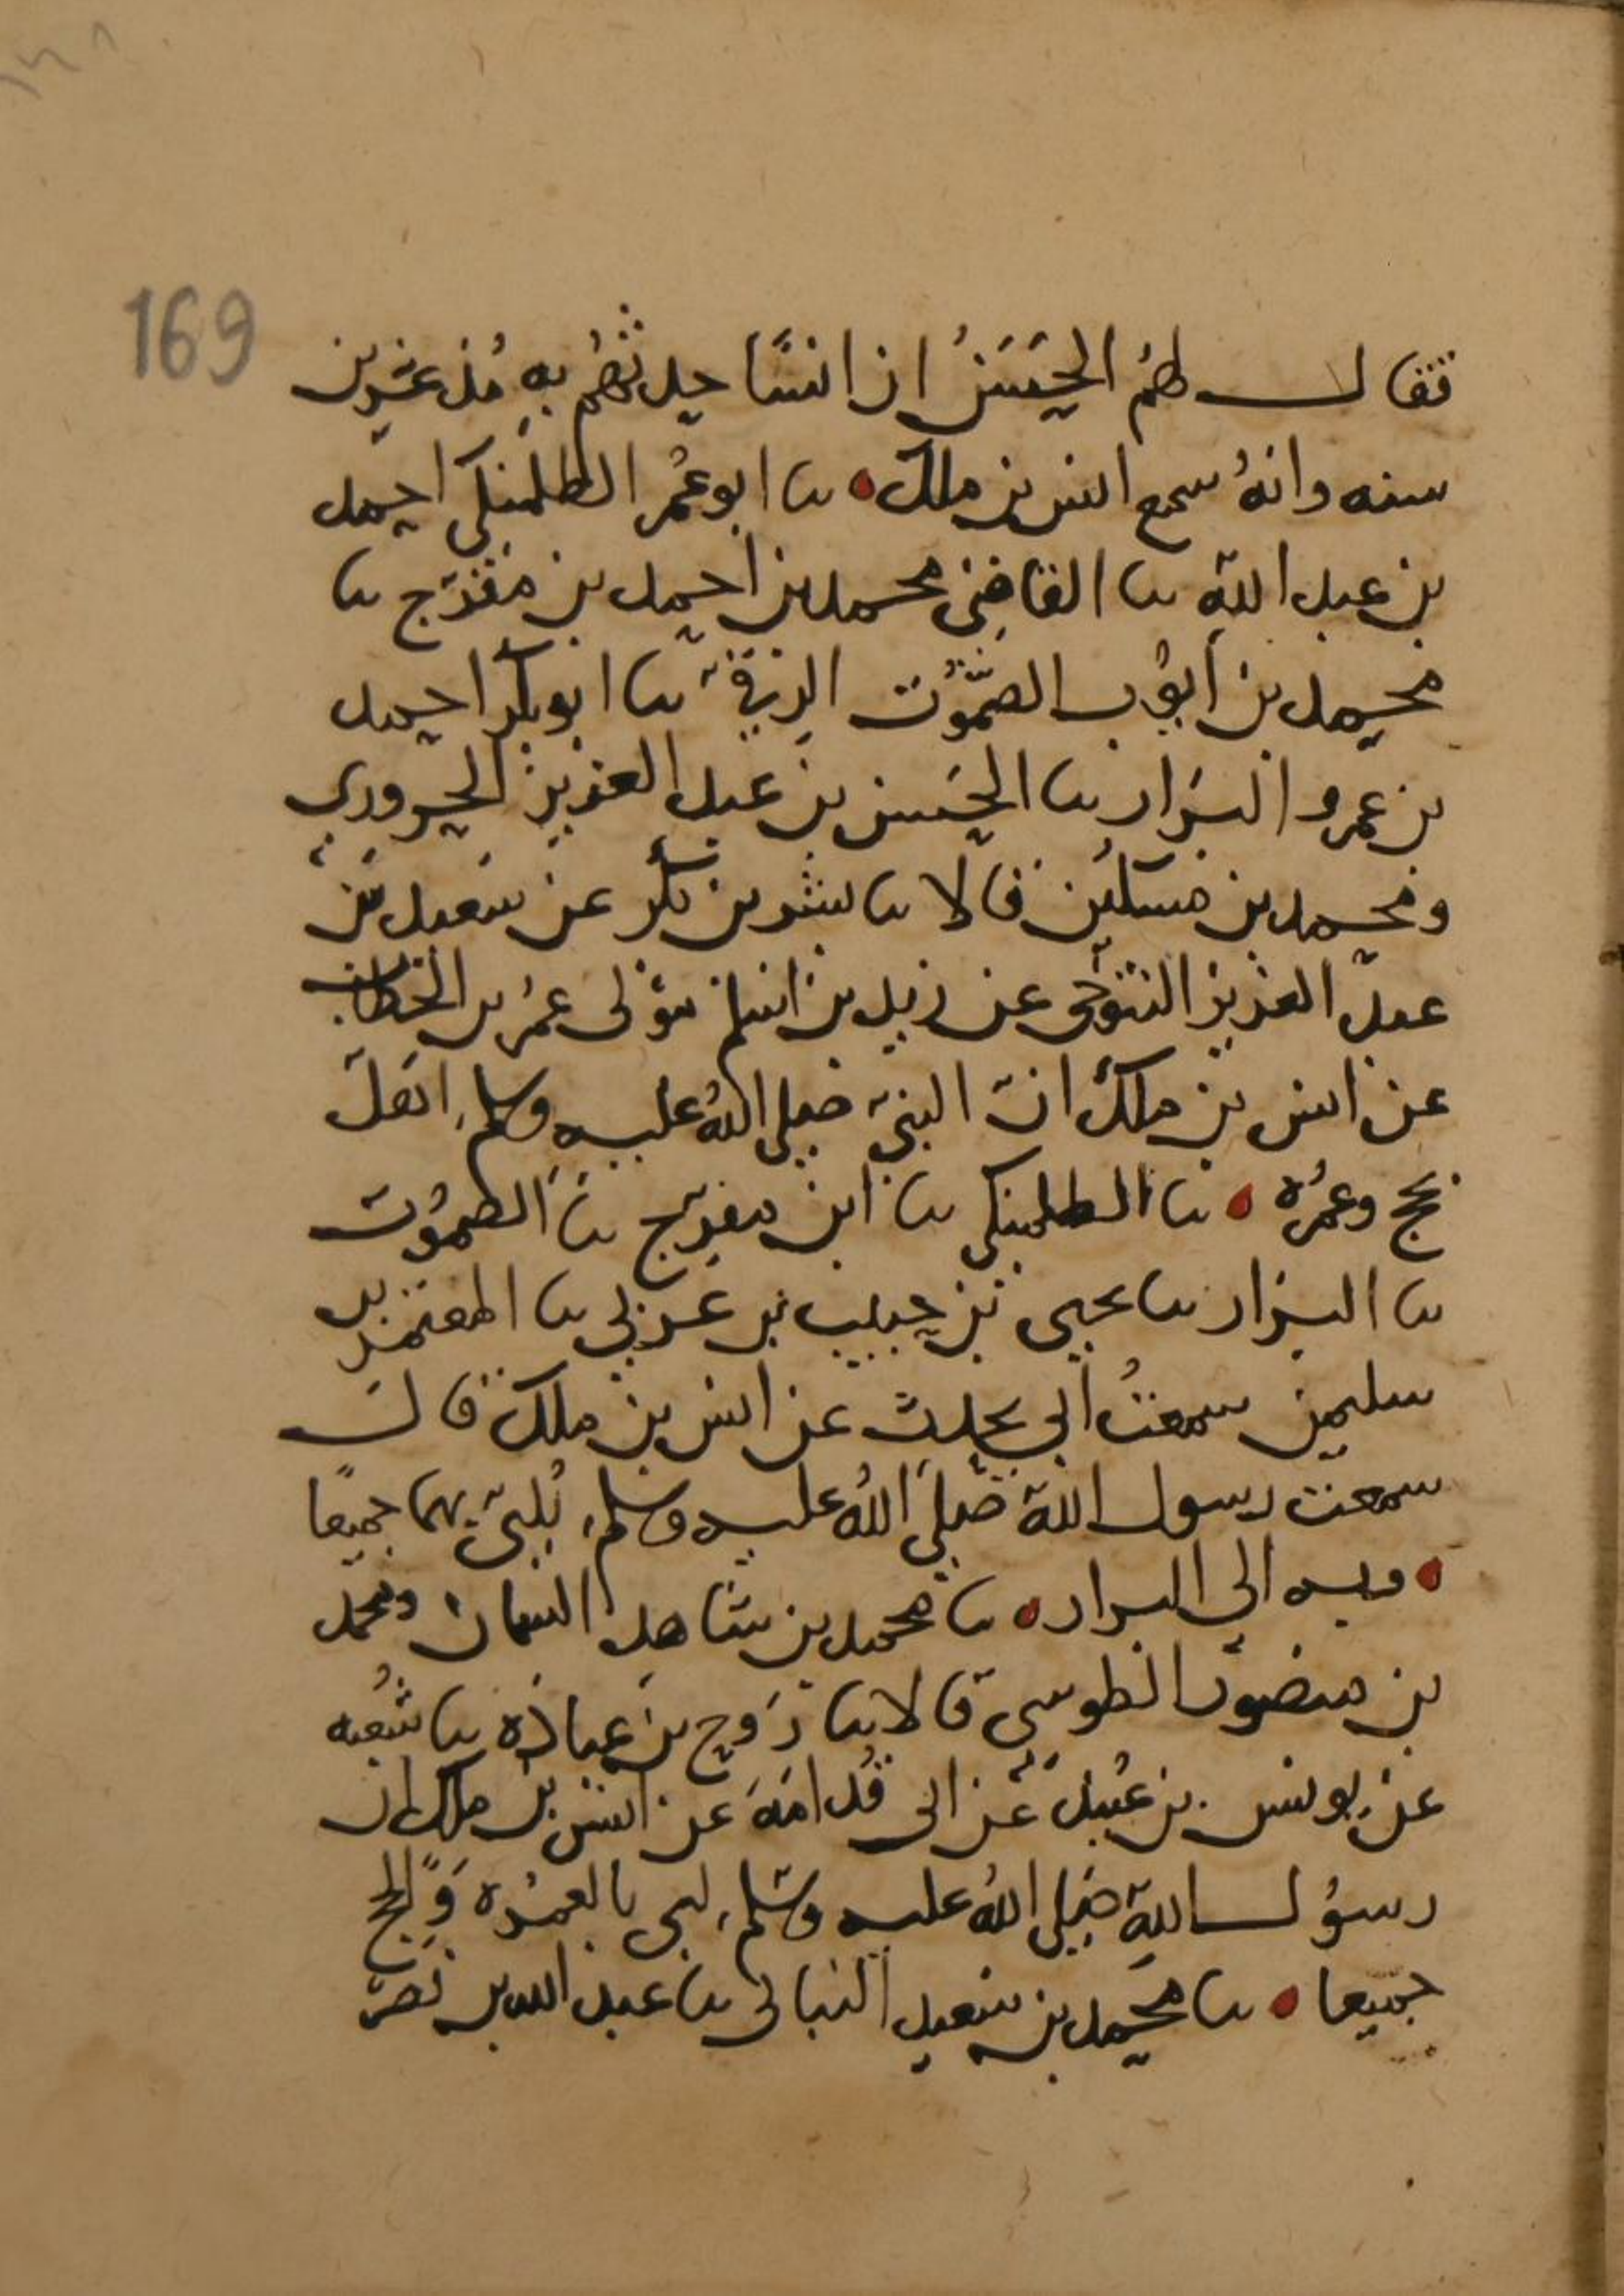 169
فقال لهم الحسن ان انسًا حدثهم به مُذ عشرين
سنه وانهُ سمع انس بن ملك ں ابو عُمر الطلمنكي احمد
بن عبد الله ں القاضي محمد بن احمد بن مفرّج ں
محمد بن أيوب الصّمُوت الرقي ں ابو بكر احمد
بن عمرو البزار ں الحَسن بن عبد العزيز الجروري
ومحمد بن مسكين قالا ں بشر بن بكر عن سعيد بن
عبد العزيز التنوخي عن زيد بن اسلم مولى عمر بن الخطاب
عن انس بن ملك ان النبيّ صلى اللهُ عليه وسلم اهَلّ
بحج وعمُره ں الطلمنكي ں ابن مفرج ں الصمُوت
ں البزار ں يحيى بن حبيب بن عربي ں المعتمر بن
سليمن سمعتُ أبي يحدث عن انس بن ملك قال
سمعت رسول الله صلى اللهُ عليه وسلم يُلبيّ بهما جميعًا
وبه الى البزار ں محمد بن شاهد السمان ومحمد
بن منصور الطوسي قالا ں رَوح بن عبادَه ں شُعبه
عن يونس بن عُبيد عن ابي قُدامَهَ عن انس بن ملك ان
رسوُل الله صلى اللهُ عليه وسَلم لبى بالعمُره وَالحج
جميعا ں محمد بن سَعيد النباتي ں عبد الله بن نَصرّ